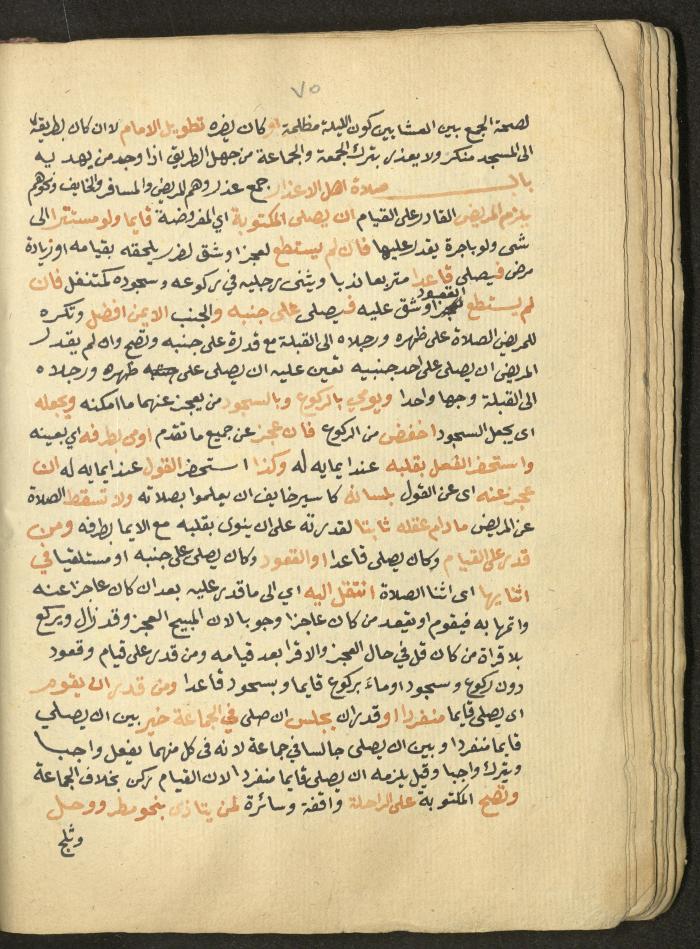 ٧٥
لصحة الجمع بين العشاءين كون الليلة مظلمة او كان يضره تطويل الامام لا ان كان بطريقه
الى المسجد منكر ولا يعذر بترك الجمعة والجماعة من جهل الطريق اذا وجد من يهديه
باب صلاة اهل الاعذار جمع عذر وهم المريض والمسافر والخايف ونحوهم
يلزم المريض القادر على القيام ان يصلي المكتوبة اي المفروضة قايما ولو مستندا الى
شى ولو باجرة يقدر عليها فان لم يستطع لعجز او شق لضرر يلحقه بقيامه او زيادة
مرض فيصلى قاعدا متربعا ندبا ويثنى رجليه في ركوعه وسجوده كمتنفل فان
لم يستطع القعود لعجز او شق عليه فيصلى على جنبه والجنب الايمن افضل وتكره
للمريض الصلاة على ظهره ورجلاه الى القبلة مع قدرة على جنبه وتصح وان لم يقدر
المريض ان يصلى على احد جنبيه تعين عليه ان يصلى على ظهره ورجلاه
الى القبلة وجها واحدا ويومي بالركوع وبالسجود من يعجز عنهما ما امكنه ويجعله
اى يجعل السجود اخفض من الركوع فان عجز عن جميع ما تقدم اومى بطرفه اي بعينه
واستحضر الفعل بقلبه عند ايمايه له وكذا استحضر القول عند ايمايه له ان
عجز عنه اى عن القول بلسانه كاسير خايف ان يعلموا بصلاته ولا تسقط الصلاة
عن المريض ما دام عقله ثابتا لقدرته على ان ينوى بقلبه مع الايما بطرفه ومن
قدر على القيام وكان يصلى قاعدا او القعود وكان يصلى على جنبه او مستلقيا في
اثنايها اى اثنا الصلاة انتقل اليه اي الى ما قدر عليه بعد ان كان عاجزا عنه
واتمها به فيقوم او يقعد من كان عاجزا وجوبا لان المبيح العجز وقد زال ويركع
بلا قراة من كان قرا في حال العجز والا قرا بعد قيامه ومن قدر على قيام وقعود
دون ركوع وسجود اوماء بركوع قايما وبسجود قاعدا ومن قدر ان يقوم
اى يصلى قايما منفردا او قدر ان يجلس ان صلى في الجماعة خير بين ان يصلي
قايما منفردا وبين ان يصلى جالسا في جماعة لانه فى كل منهما يفعل واجبا
ويترك واجبا وقيل يلزمه ان يصلى قايما منفردا لان القيام ركن بخلاف الجماعة
وتصح المكتوبة على الراحلة واقفة وسائرة لمن يتاذى بنحو مطر ووحل
وثلج